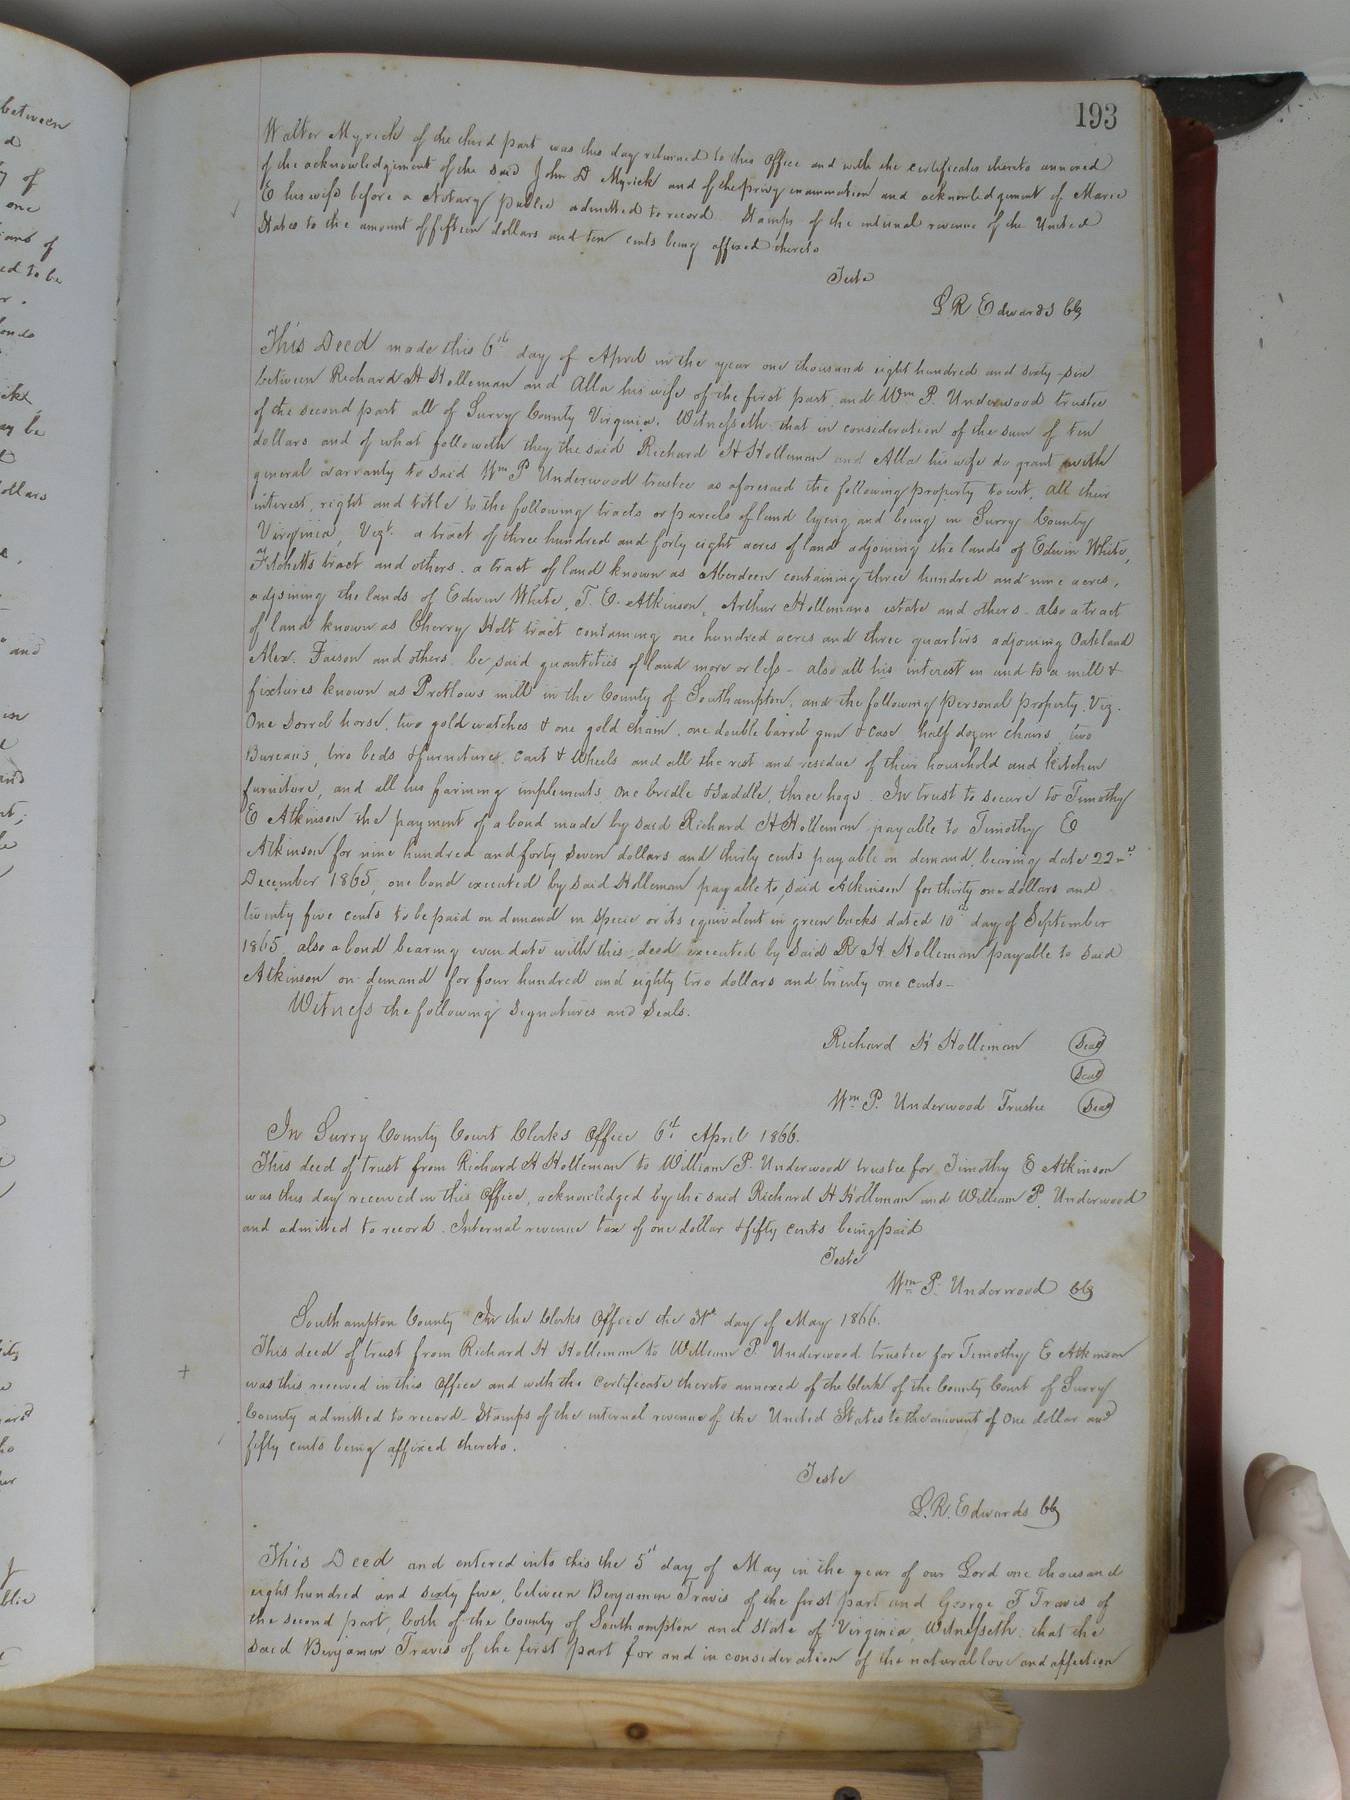 193
Walter Myrick of the third part was this day returned to this Office and with the certificates thereto annexed
of the acknowledgement of the said John D Myrick and of the privy examination and acknowledgment of Marie
E his wife before a Notary public admitted to record Stamps of the internal revenue of the United
States to the amount of fifteen dollars and ten cents being affixed thereto
Teste
L R Edwards Clk
This Deed made this 6th day of April in the year one thousand eight hundred and sixty-six
between Richard H Holleman and Alla his wife of the first part, and Wm P. Underwood trustee
of the second part all of Surry County Virginia. Witnesseth that in consideration of the sum of ten
dollars and of what followeth they the said Richard H Holleman and Alla his wife do grant with
general warranty to said Wm P Underwood trustee as aforesaid the following property to wit, all their
interest, right and title to the following tracts or parcels of land lying and being in Surry County
Virginia, Vizt. a tract of three hundred and forty eight acres of land adjoining the lands of Edwin White,
Fitchetts tract and others. a tract of land known as Aberdeen containing three hundred and nine acres,
adjoining the lands of Edwin White, T. E. Atkinson, Arthur Hollemans estate and others - also a tract
of land known as Cherry Holt tract containing one hundred acres and three quarters adjoining Oakland
Alex. Faison and others. be said quantities of land more or less - also all his interest in and to a mill &
fixtures known as Pretlows mill in the County of Southampton, and the following personal property. Viz.
One Sorrel horse, two gold watches & one gold chain, one double barrel gun & case half dozen chairs, two
Bureaus, two beds & furniture, cart & Wheels and all the rest and residue of their household and kitchen
furniture, and all his farming implements one bridle & saddle, three hogs. In trust to secure to Timothy
E Atkinson the payment of a bond made by said Richard H Holleman payable to Timothy E
Atkinson for nine hundred and forty seven dollars and thirty cents payable on demand, bearing date 22nd
December 1865, one bond executed by said Holleman payable to said Atkinson for thirty one dollars and
twenty five cents to be paid on demand in specie or its equivalent in green backs dated 10th day of September
1865, also a bond bearing even date with this deed executed by said R H Holleman payable to said
Atkinson on demand for four hundred and eighty two dollars and twenty one cents-
Witness the following signatures and seals.
Richard H Holleman Seal
Seal
Wm P. Underwood Trustee Seal
In Surry County Court Clerks Office 6th April 1866.
This deed of trust from Richard H Holleman to William P. Underwood trustee for Timothy E Atkinson
was this day received in this Office, acknowledged by the said Richard H Holleman and William P. Underwood
and admitted to record. Internal revenue tax of one dollar & fifty cents being paid
Teste
Wm P. Underwood Clk
Southampton County In the Clerks Office the day of May 1866.
This deed of trust from Richard H Holleman to William P. Underwood trustee for Timothy E Atkinson
was this received in this Office and with the certificate thereto annexed of the Clerk of the County Court of Surry
County admitted to record - Stamps of the internal revenue of the United States to the amount of one dollar and
fifty cents being affixed thereto.
Teste
L. R. Edwards Clk
This Deed and entered into this the 5th day of May in the year of our Lord one thousand
eight hundred and sixty five, between Benjamin Travis of the first part and George T Travis of
the second part, both of the County of Southampton and State of Virginia, Witnesseth: that the
said Benjamin Travis of the first part for and in consideration of the natural love and affection